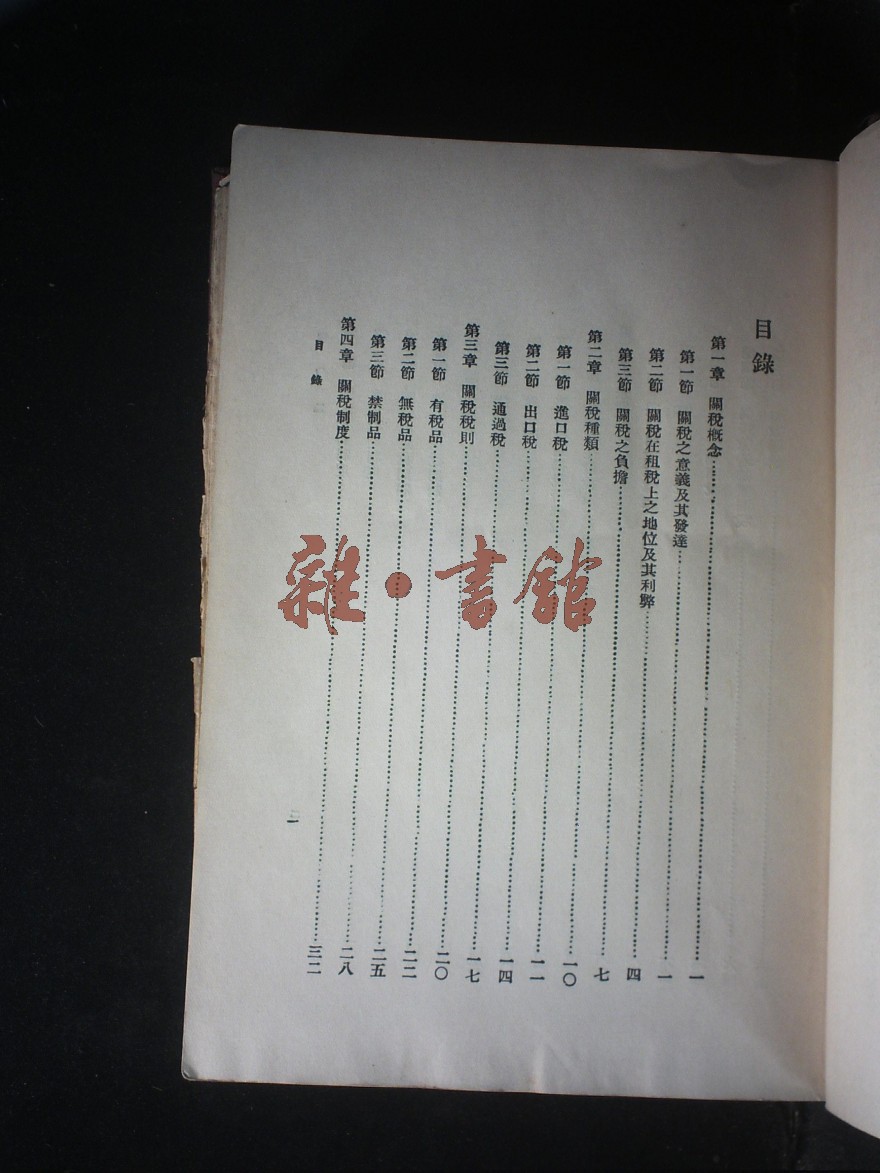 目錄
第一章 關稅概念……一
第一節 關稅之意義及其發達……一
第二節 關稅在租稅上之地位及其利弊……四
第三節 關稅之負擔……七
第二章 關稅種類……一〇
第一節 進口稅……一一
第二節 出口稅……一四
第三節 通過稅……一七
第三章 關稅稅則……二〇
第一節 有稅品……二二
第二節 無稅品……二五
第三節 禁制品……二八
第四章 關稅制度……三二
目錄
一
雜·書館